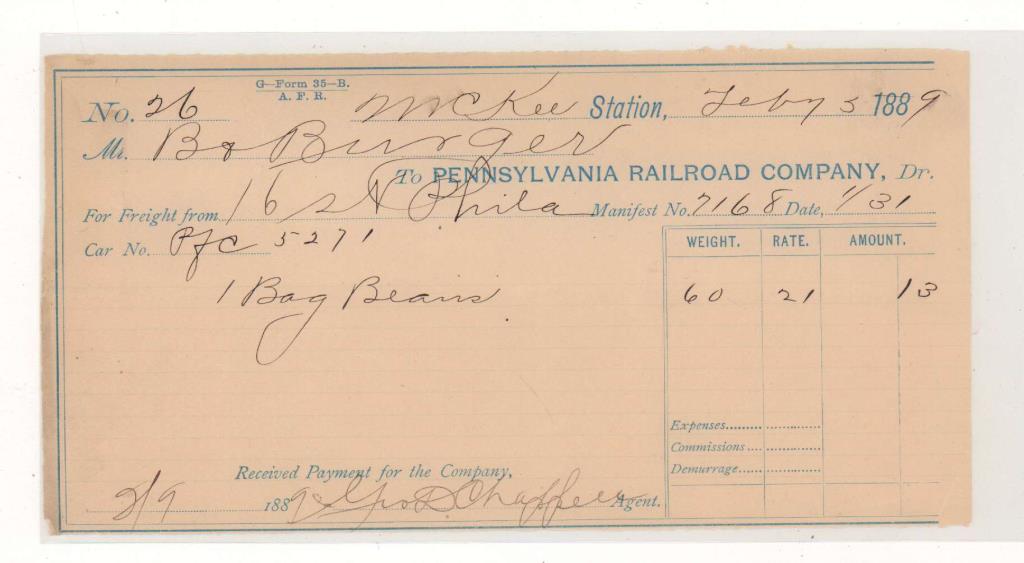 G—Form 35—B.
A. F. R.
No. 26 McKee Station, Feby 3 1889
Mr. B Burger
To PENNSYLVANIA RAILROAD COMPANY, Dr.
For Freight from 16 St Phila Manifest No. 7168 Date, 1/31
Car No. 5271
WEIGHT. RATE. AMOUNT.
1 Bag Beans 60 21 13
Expenses
Commissions
Demurrage
Received Payment for the Company,
2/9 1889 Agent.